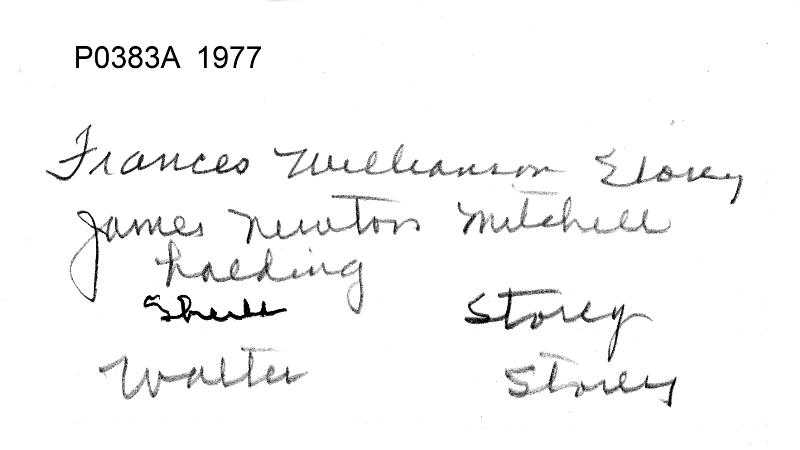 P0383A 1977
Frances Williamson Storey
James Newton Mitchell
holding
Storey
Walter Storey